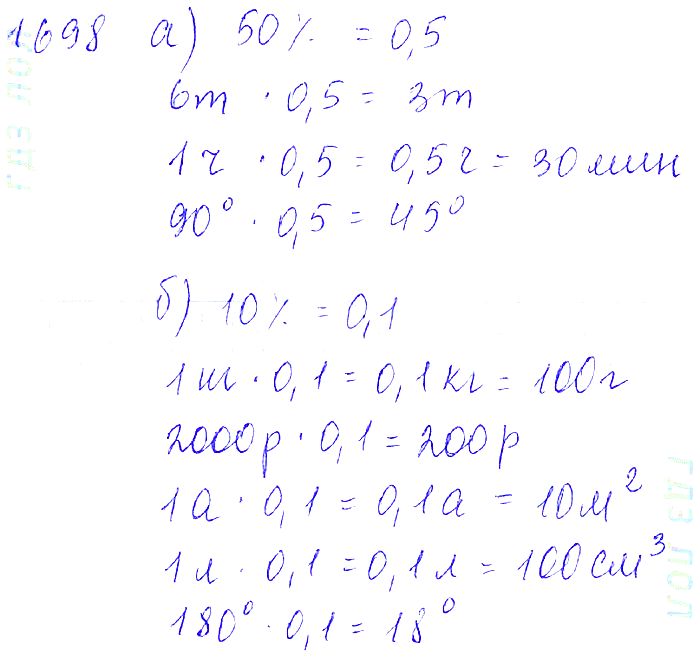 1698 а) 50% = 0,5
6т · 0,5 = 3т
1ч · 0,5 = 0,5ч = 30мин
90° · 0,5 = 45°
б) 10% = 0,1
1кг · 0,1 = 0,1кг = 100г
2000р · 0,1 = 200р
1а · 0,1 = 0,1а = 10м²
1л · 0,1 = 0,1л = 100см³
180° · 0,1 = 18°